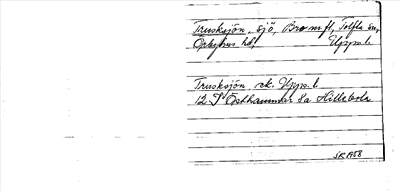 Trusksjön, sjö, Bromfl, Tolfta sn,
Örbyhus hd, Upps. l
Trusksjön ek. Upps. l
12 I Östhammar 8a Hillebola
SK 1958